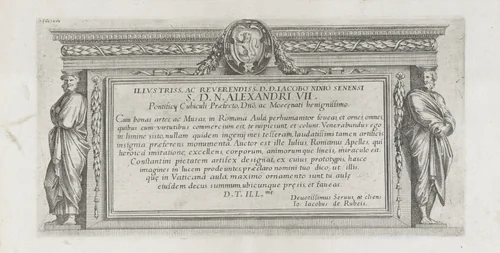 ILLVSTRISS. AC REVERENDISS. D. D. IACOBO NINIO SENENSI
S. D. N. ALEXANDRI VII.
Pontificij Cubiculi Prefecto, Dño, ac Mecenati benignissimo
Cum bonas artes, ac Musas, in Romana Aula, perhumaniter foueas, et ornes, omnes,
quibus cum virtutibus commercium est, te suspiciunt, et colunt. Venerabundus ego
in limine sisto, nullam quidem ingenij mei tesseram, laudatissimi tamen artificis
insignia preferens monumenta. Auctor est ille Iulius Romanus Apelles, qui
heroica imitatione, excellens, corporum, animorumque lineis, miraculo est.
Constantini pictatem artifex designat, ex cuius prototypis, hasce
imagines in lucem prodeuntes, preclaro nomini tuo dico, ut illi
que in Vaticana aula, maximo ornamento sunt, tu aule
eiusdem decus summum, ubicunque presis, et faueas.
D. T. ILL.me
Deuotissimus Seruus, et cliens
Io Iacobus de Rubeis.